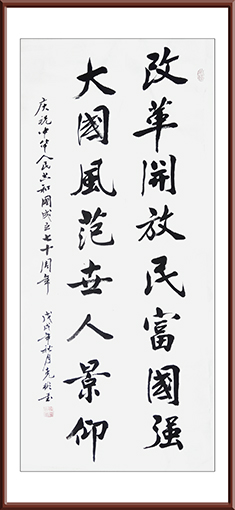 改革開放民富國强
大國風范世人景仰
庆祝中华人民共和國成立七十周年
戊戌年秋月